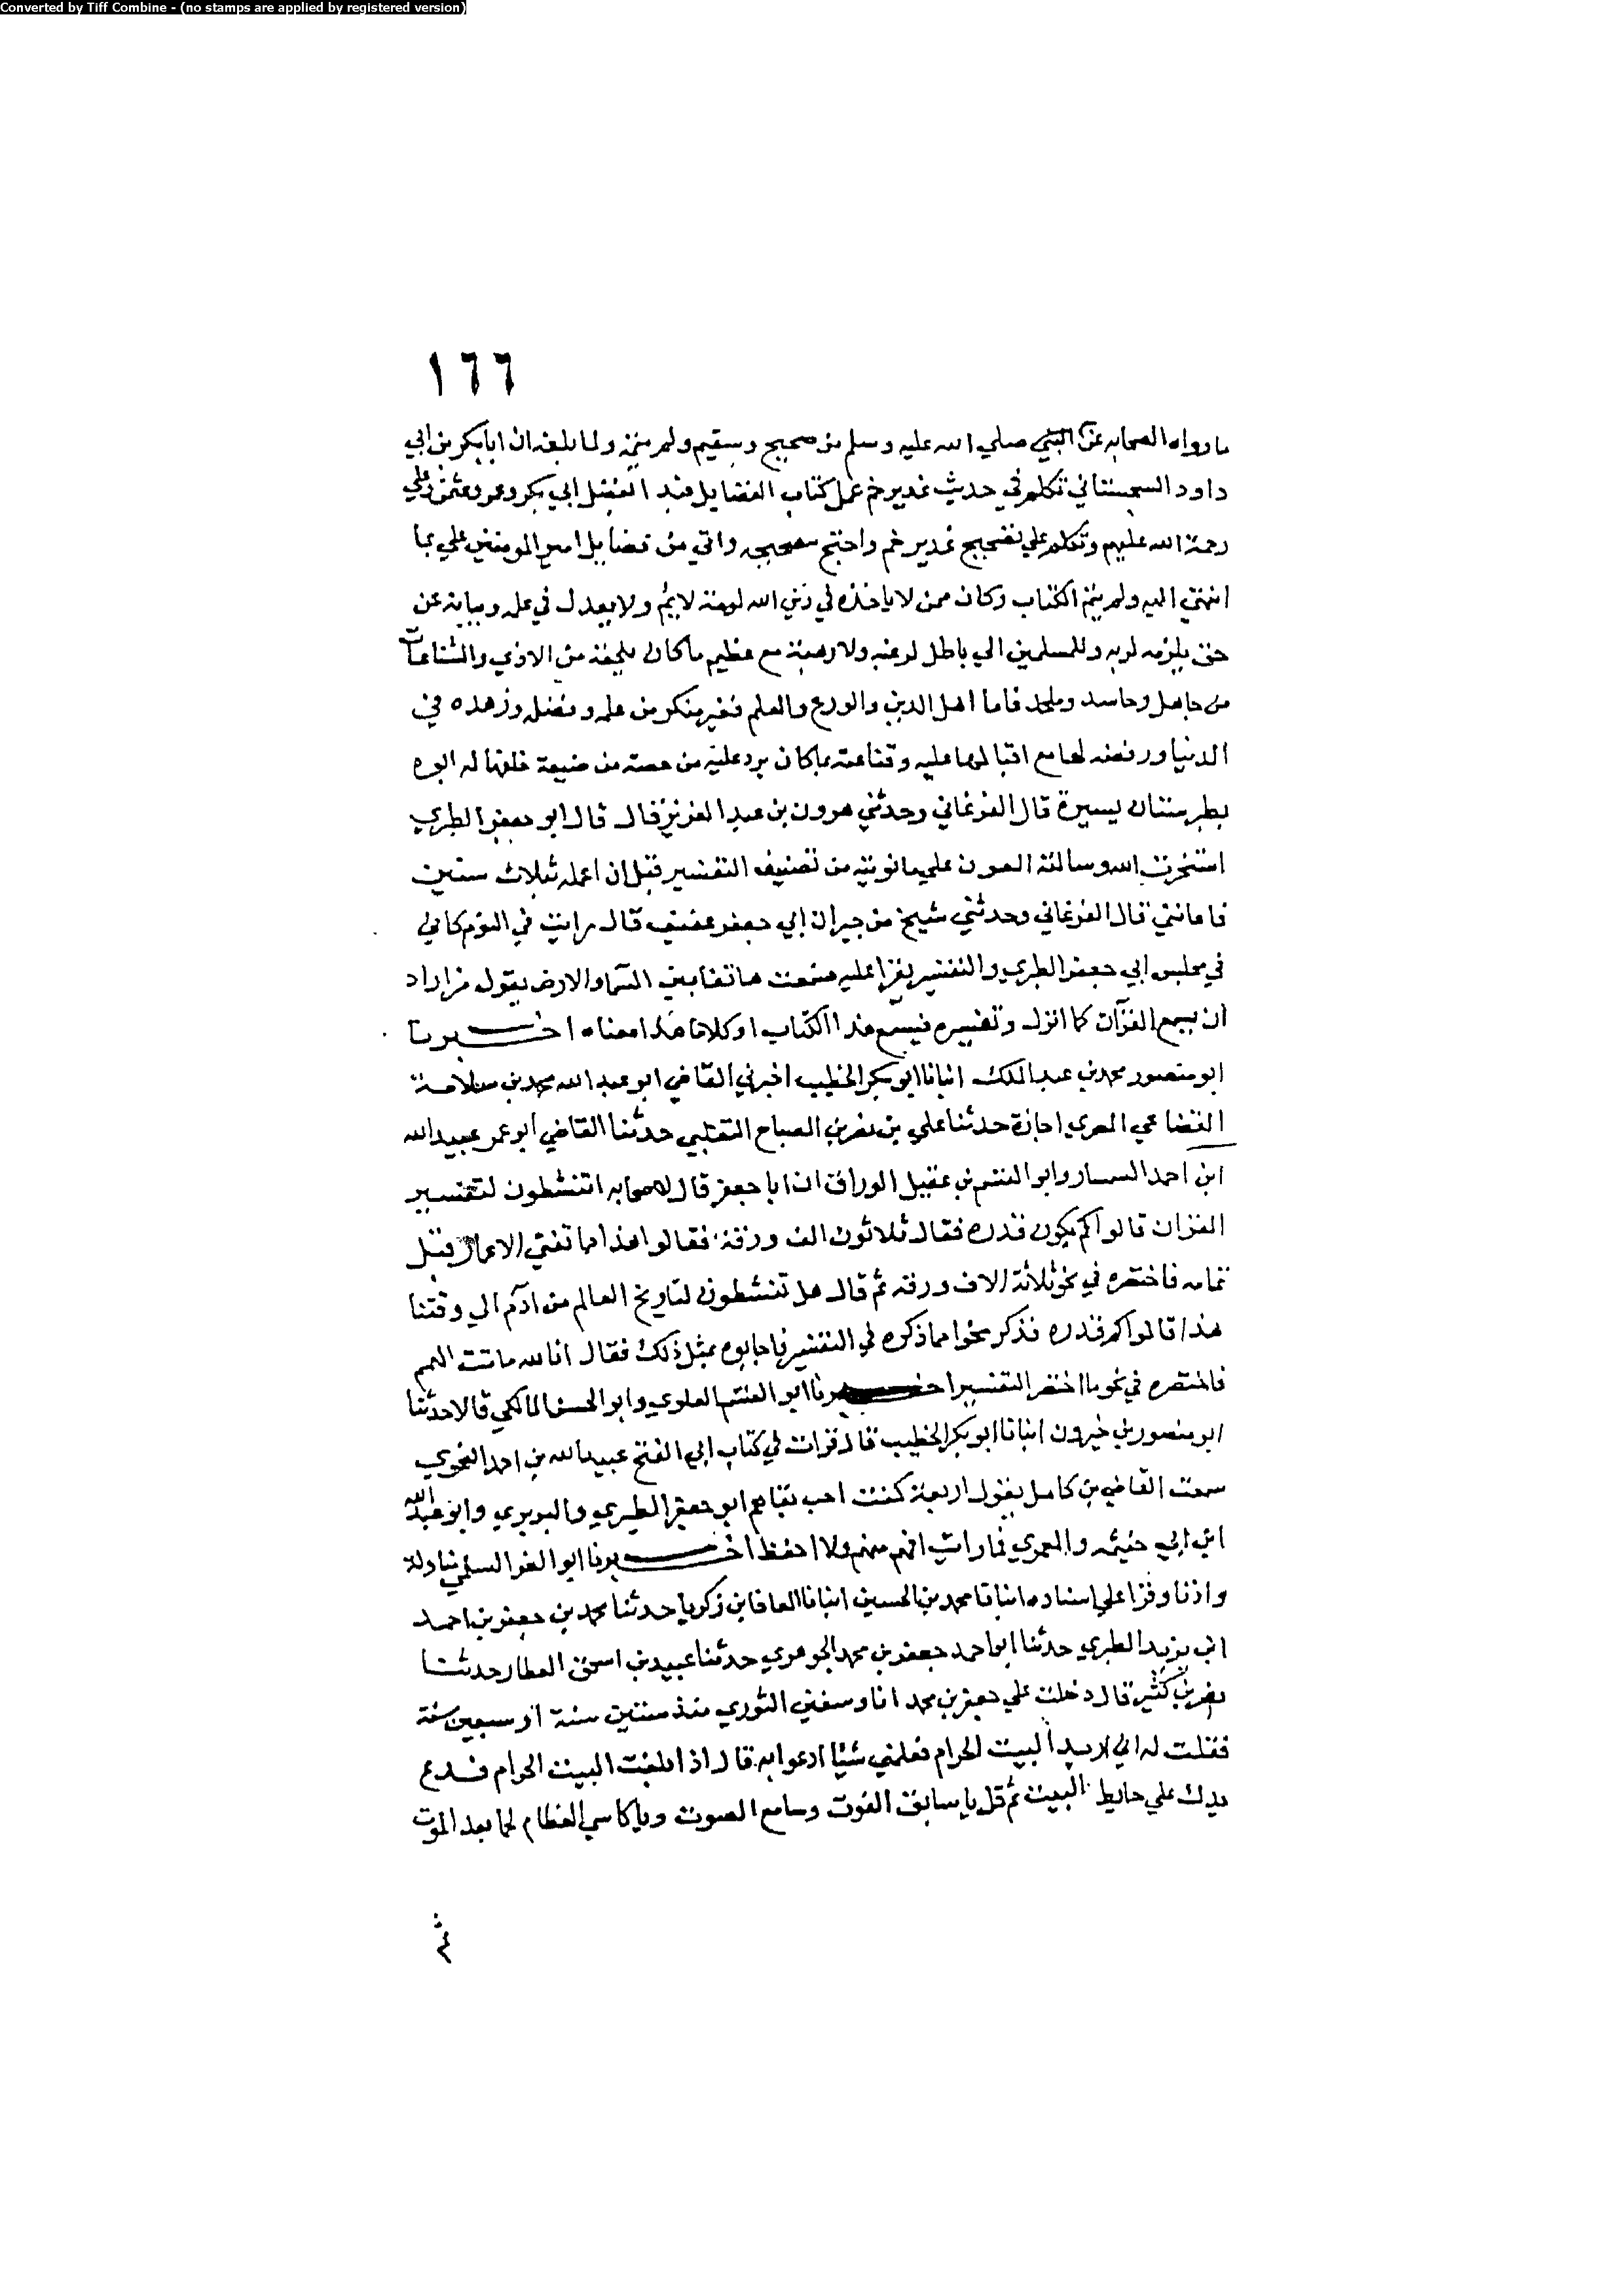 Converted by Tiff Combine - (no stamps are applied by registered version)
١٦٦
ما رواه الصحابه عن النبي صلي الله عليه وسلم من صحيح وسقيم ولم يتمه ولما بلغه ان ابا بكر بن ابي
داود السجستاني تكلم في حديث غدير خم عمل كتاب الفضايل فبدا بفضل ابي بكر وعمر وعثمن وعلي
رحمة الله عليهم وتكلم علي تصحيح غدير خم واحتج لتصحيحه واتي من فضايل امير المومنين علي بما
انتهي اليه ولم يتم الكتاب وكان ممن لا ياخذه في دين الله لومة لايم ولا يعدل في علمه وبيانه عن
حق يلزمه لربه وللمسلمين الي باطل لرغبه ولا رهبة مع عظيم ما كان يلحقه من الاذي والشناعات
من جاهل وحاسد وملحد فاما اهل الدين والورع والعلم فغير منكرين علمه وفضله وزهده في
الدنيا ورفضه لها مع اقبالها عليه وقناعته بما كان يرد عليه من حصة من ضيعة خلفها له ابوه
بطبرستان يسيرة قال الفرغاني وحدثني هرون بن عبد العزيز قال قال ابو جعفر الطبري
استخرت الله وسالته العون علي ما نويته من تصنيف التفسير قبل ان اعمله ثلاث سنين
فاعانني قال الفرغاني وحدثني شيخ من جيران ابي جعفر عفيف قال رايت في النوم كاني
في مجلس ابي جعفر الطبري والتفسير يقرا عليه فسمعت هاتفا بين السما والارض يقول من اراد
ان يسمع القرآن كما انزل وتفسيره فليسمع هذا الكتاب او كلاما هذا معناه اخبرنا
ابو منصور محمد بن عبد الملك انبانا ابو بكر الخطيب اخبرني القاضي ابو عبد الله محمد بن سلامة
القضاعي المصري اجازة حدثنا علي بن نصر بن الصباح التغلبي حدثنا القاضي ابو عمر عبيد الله
ابن احمد السمسار وابو القسم بن عقيل الوراق ان ابا جعفر قال لاصحابه اتنشطون لتفسير
القران قالوا كم يكون قدره فقال ثلاثون الف ورقة فقالوا هذا مما تفني الاعمار قبل
تمامه فاختصره في نحو ثلاثة الاف ورقه ثم قال هل تنشطون لتاريخ العالم من ادم الي وقتنا
هذا قالوا كم قدره فذكر نحوا مما ذكره في التفسير فاجابوه بمثل ذلك فقال انا لله ماتت الهمم
فاختصره في نحو ما اختصر التفسير اخبرنا ابو القسم العلوي وابو الحسن المالكي قالا حدثنا
ابو منصور بن خيرون انبانا ابو بكر الخطيب قال قرات في كتاب ابي الفتح عبيد الله بن احمد النحوي
سمعت القاضي بن كامل يقول اربعة كنت احب بقاهم ابو جعفر الطبري والبربري وابو عبد الله
ابن ابي خيثمه والمعمري فما رايت افهم منهم ولا احفظ اخبرنا ابو العز السلمي مناولة
واذنا وقرا علي اسناده انبانا محمد بن الحسين انبانا المعافا بن زكريا حدثنا محمد بن جعفر بن احمد
ابن يزيد الطبري حدثنا ابو احمد جعفر بن محمد الجوهري حدثنا عبيد بن اسحق العطار حدثنا
نصر بن كثير قال دخلت علي جعفر بن محمد انا وسفين الثوري منذ ستين سنة او سبعين سنة
فقلت له اني اريد البيت الحرام فعلمني شيا ادعوا به قال اذا بلغت البيت الحرام فضع
يدك علي حايط البيت ثم قل يا سابق الفوت وسامع الصوت ويا كاسي العظام لحما بعد الموت